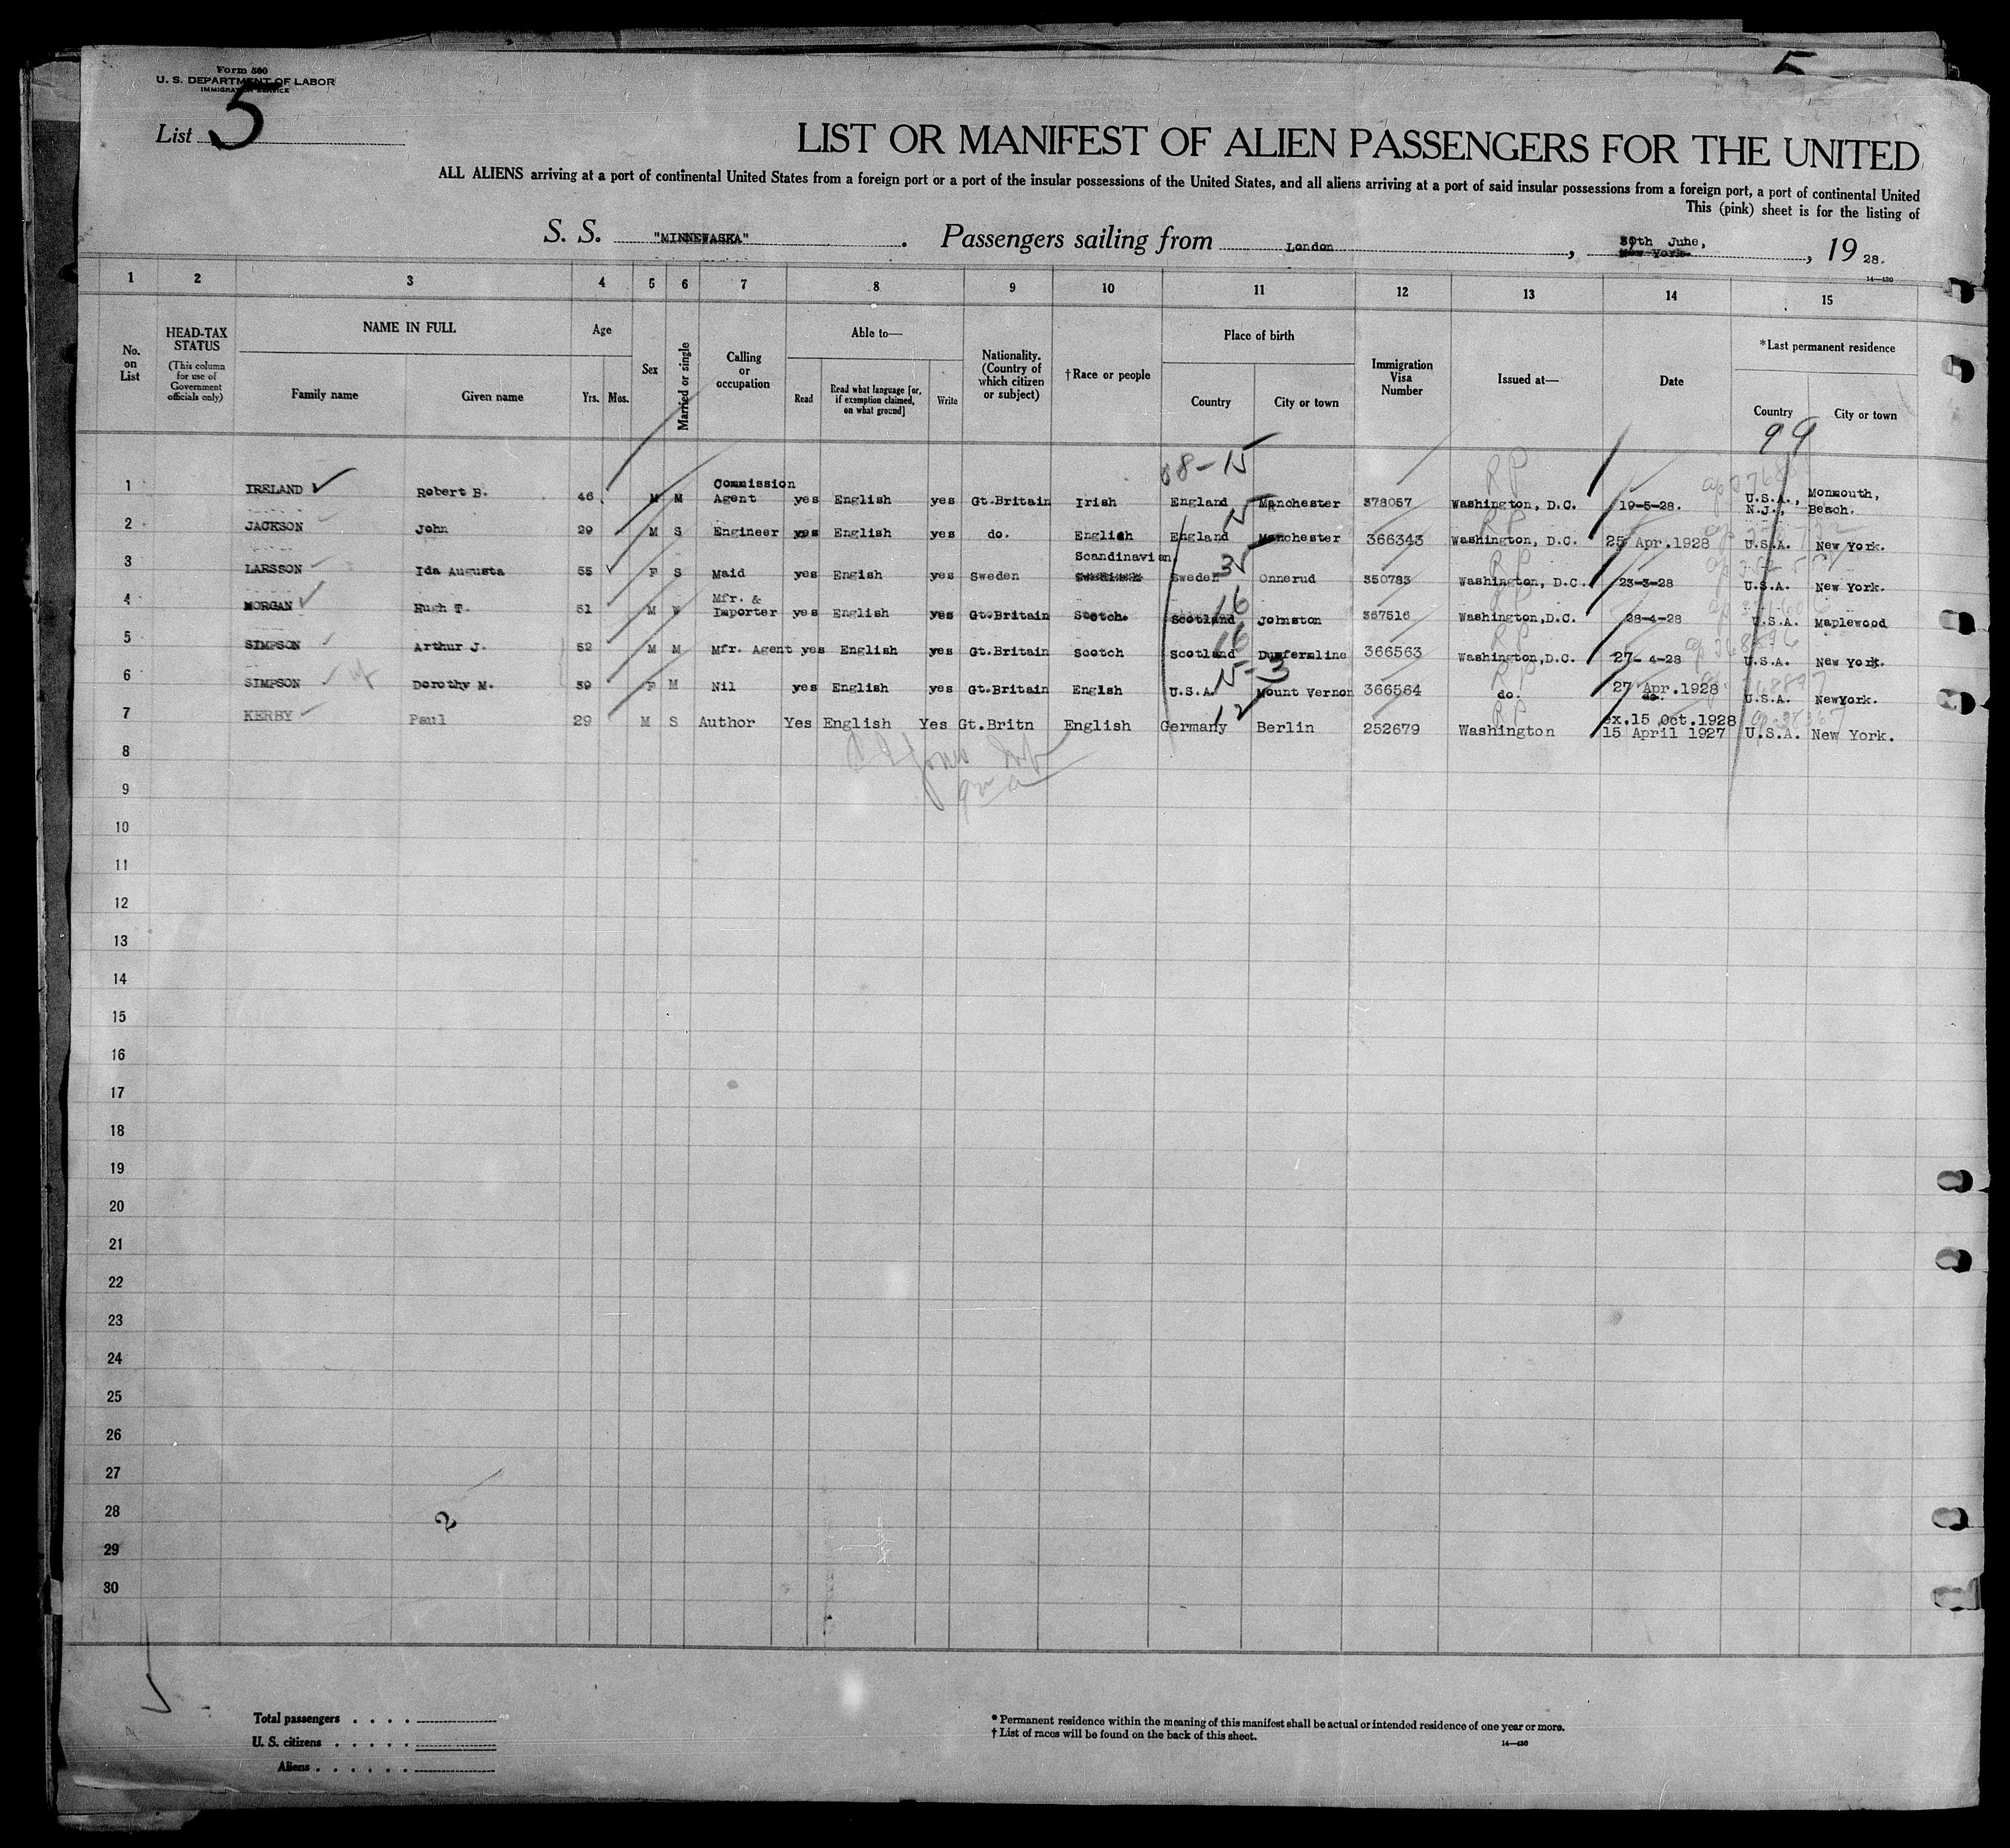 Form 500
U. S. DEPARTMENT OF LABOR
IMMIGRATION SERVICE
5
List 5
LIST OR MANIFEST OF ALIEN PASSENGERS FOR THE UNITED
ALL ALIENS arriving at a port of continental United States from a foreign port or a port of the insular possessions of the United States, and all aliens arriving at a port of said insular possessions from a foreign port, a port of continental United
This (pink) sheet is for the listing of
S. S. "MINNEWASKA". Passengers sailing from London, 30th June, New York, 19 28.
14—430
1 2 3 4 5 6 7 8 9 10 11 12 13 14 15
No. on List
HEAD-TAX STATUS (This column for use of Government officials only)
NAME IN FULL Family name Given name
Age Yrs. Mos.
Sex
Married or single
Calling or occupation
Able to— Read Read what language [or, if exemption claimed, on what ground] Write
Nationality. (Country of which citizen or subject)
†Race or people
Place of birth Country City or town
Immigration Visa Number
Issued at—
Date
*Last permanent residence Country City or town
99
1 IRELAND Robert B. 46 M M Commission Agent yes English yes Gt.Britain Irish England Manchester 378057 Washington, D.C. 19-5-28. U.S.A., N.J., Monmouth, Beach.
2 JACKSON John 29 M S Engineer yes English yes do. English England Manchester 366343 Washington, D.C. 25 Apr.1928 U.S.A. New York.
3 LARSSON Ida Augusta 55 F S Maid yes Engish yes Sweden Scandinavian Sweden Onnerud 350783 Washington, D.C. 23-3-28 U.S.A. New York.
4 MORGAN Hugh T. 51 M W Mfr. & Importer yes English yes Gt.Britain Scotch. Scotland Johnston 367516 Washington,D.C. 28-4-28 U.S.A. Maplewood
5 SIMPSON Arthur J. 52 M M Mfr. Agent yes English yes Gt.Britain Scotch Scotland Dumfermline 366563 Washington,D.C. 27-4-28 U.S.A. New York.
6 SIMPSON Dorothy M. 39 F M Nil yes English yes Gt.Britain Englsh U.S.A. Mount Vernon 366564 do. 27 Apr.1928 do. U.S.A. NewYork.
7 KERBY Paul 29 M S Author Yes English Yes Gt.Britn English Germany Berlin 252679 Washington ex.15 Oct.1928 15 April 1927 U.S.A. New York.
8
9
10
11
12
13
14
15
16
17
18
19
20
21
22
23
24
25
26
27
28
29
30
Total passengers . . . .
U. S. citizens . . . . .
Aliens . . . . . .
* Permanent residence within the meaning of this manifest shall be actual or intended residence of one year or more.
† List of races will be found on the back of this sheet.
14—430